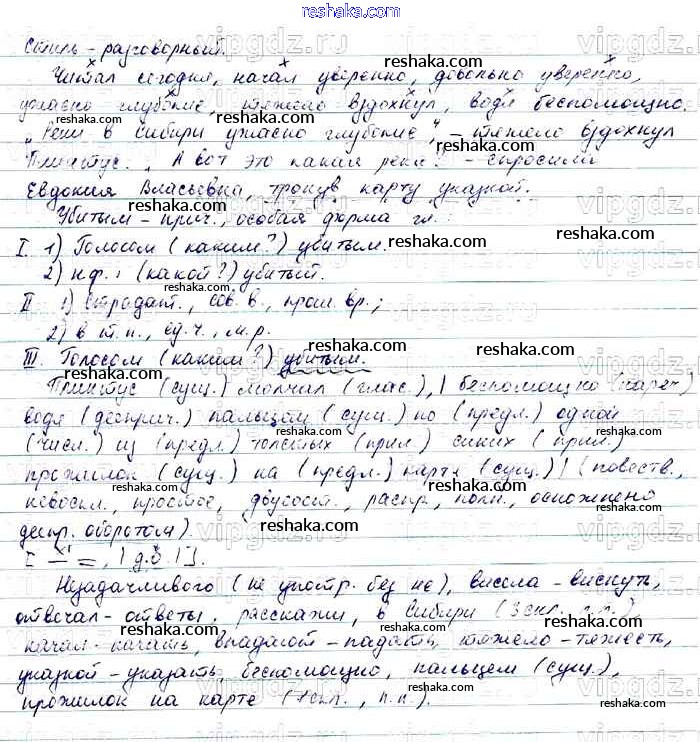 Стиль - разговорный.
Читал сегодня, начал уверенно, довольно уверенно,
ужасно глубокие, тяжело вздохнул, водя беспомощно.
„Реки в Сибири ужасно глубокие", - тяжело вздохнул
Плинтус. „А вот это какая река? - спросила
Евдокия Власьевна, тронув карту указкой.
Убитым - прич., особая форма гл.:
I. 1) Голосом (каким?) убитым.
2) н.ф.: (какой?) убитый.
II 1) Страдат., сов. в., прош. вр.;
2) в т.п., ед.ч., м.р.
III. Голосом (каким?) убитым.
Плинтус (сущ.) молчал (глаг.), | беспомощно (нареч.)
водя (дееприч.) пальцем (сущ.) по (предл.) одной
(числ.) из (предл.) толстых (прил.) синих (прил.)
прожилок (сущ.) на (предл.) карте (сущ.) | (повеств.,
невоскл., простое, двусост., распр., полн., осложнено
деепр. оборотом).
[ — =, | д.о. | ].
Незадачливого (не употр. без не), висела - виснуть,
отвечал - ответы, расскажи, в Сибири (3 скл., п.п.),
качал - качать, впадают - падать, тяжело - тяжесть,
указкой - указать, беспомощно, пальцем (сущ.),
прожилок на карте (1 скл., п.п.).
reshaka.com
vipgdz.ru